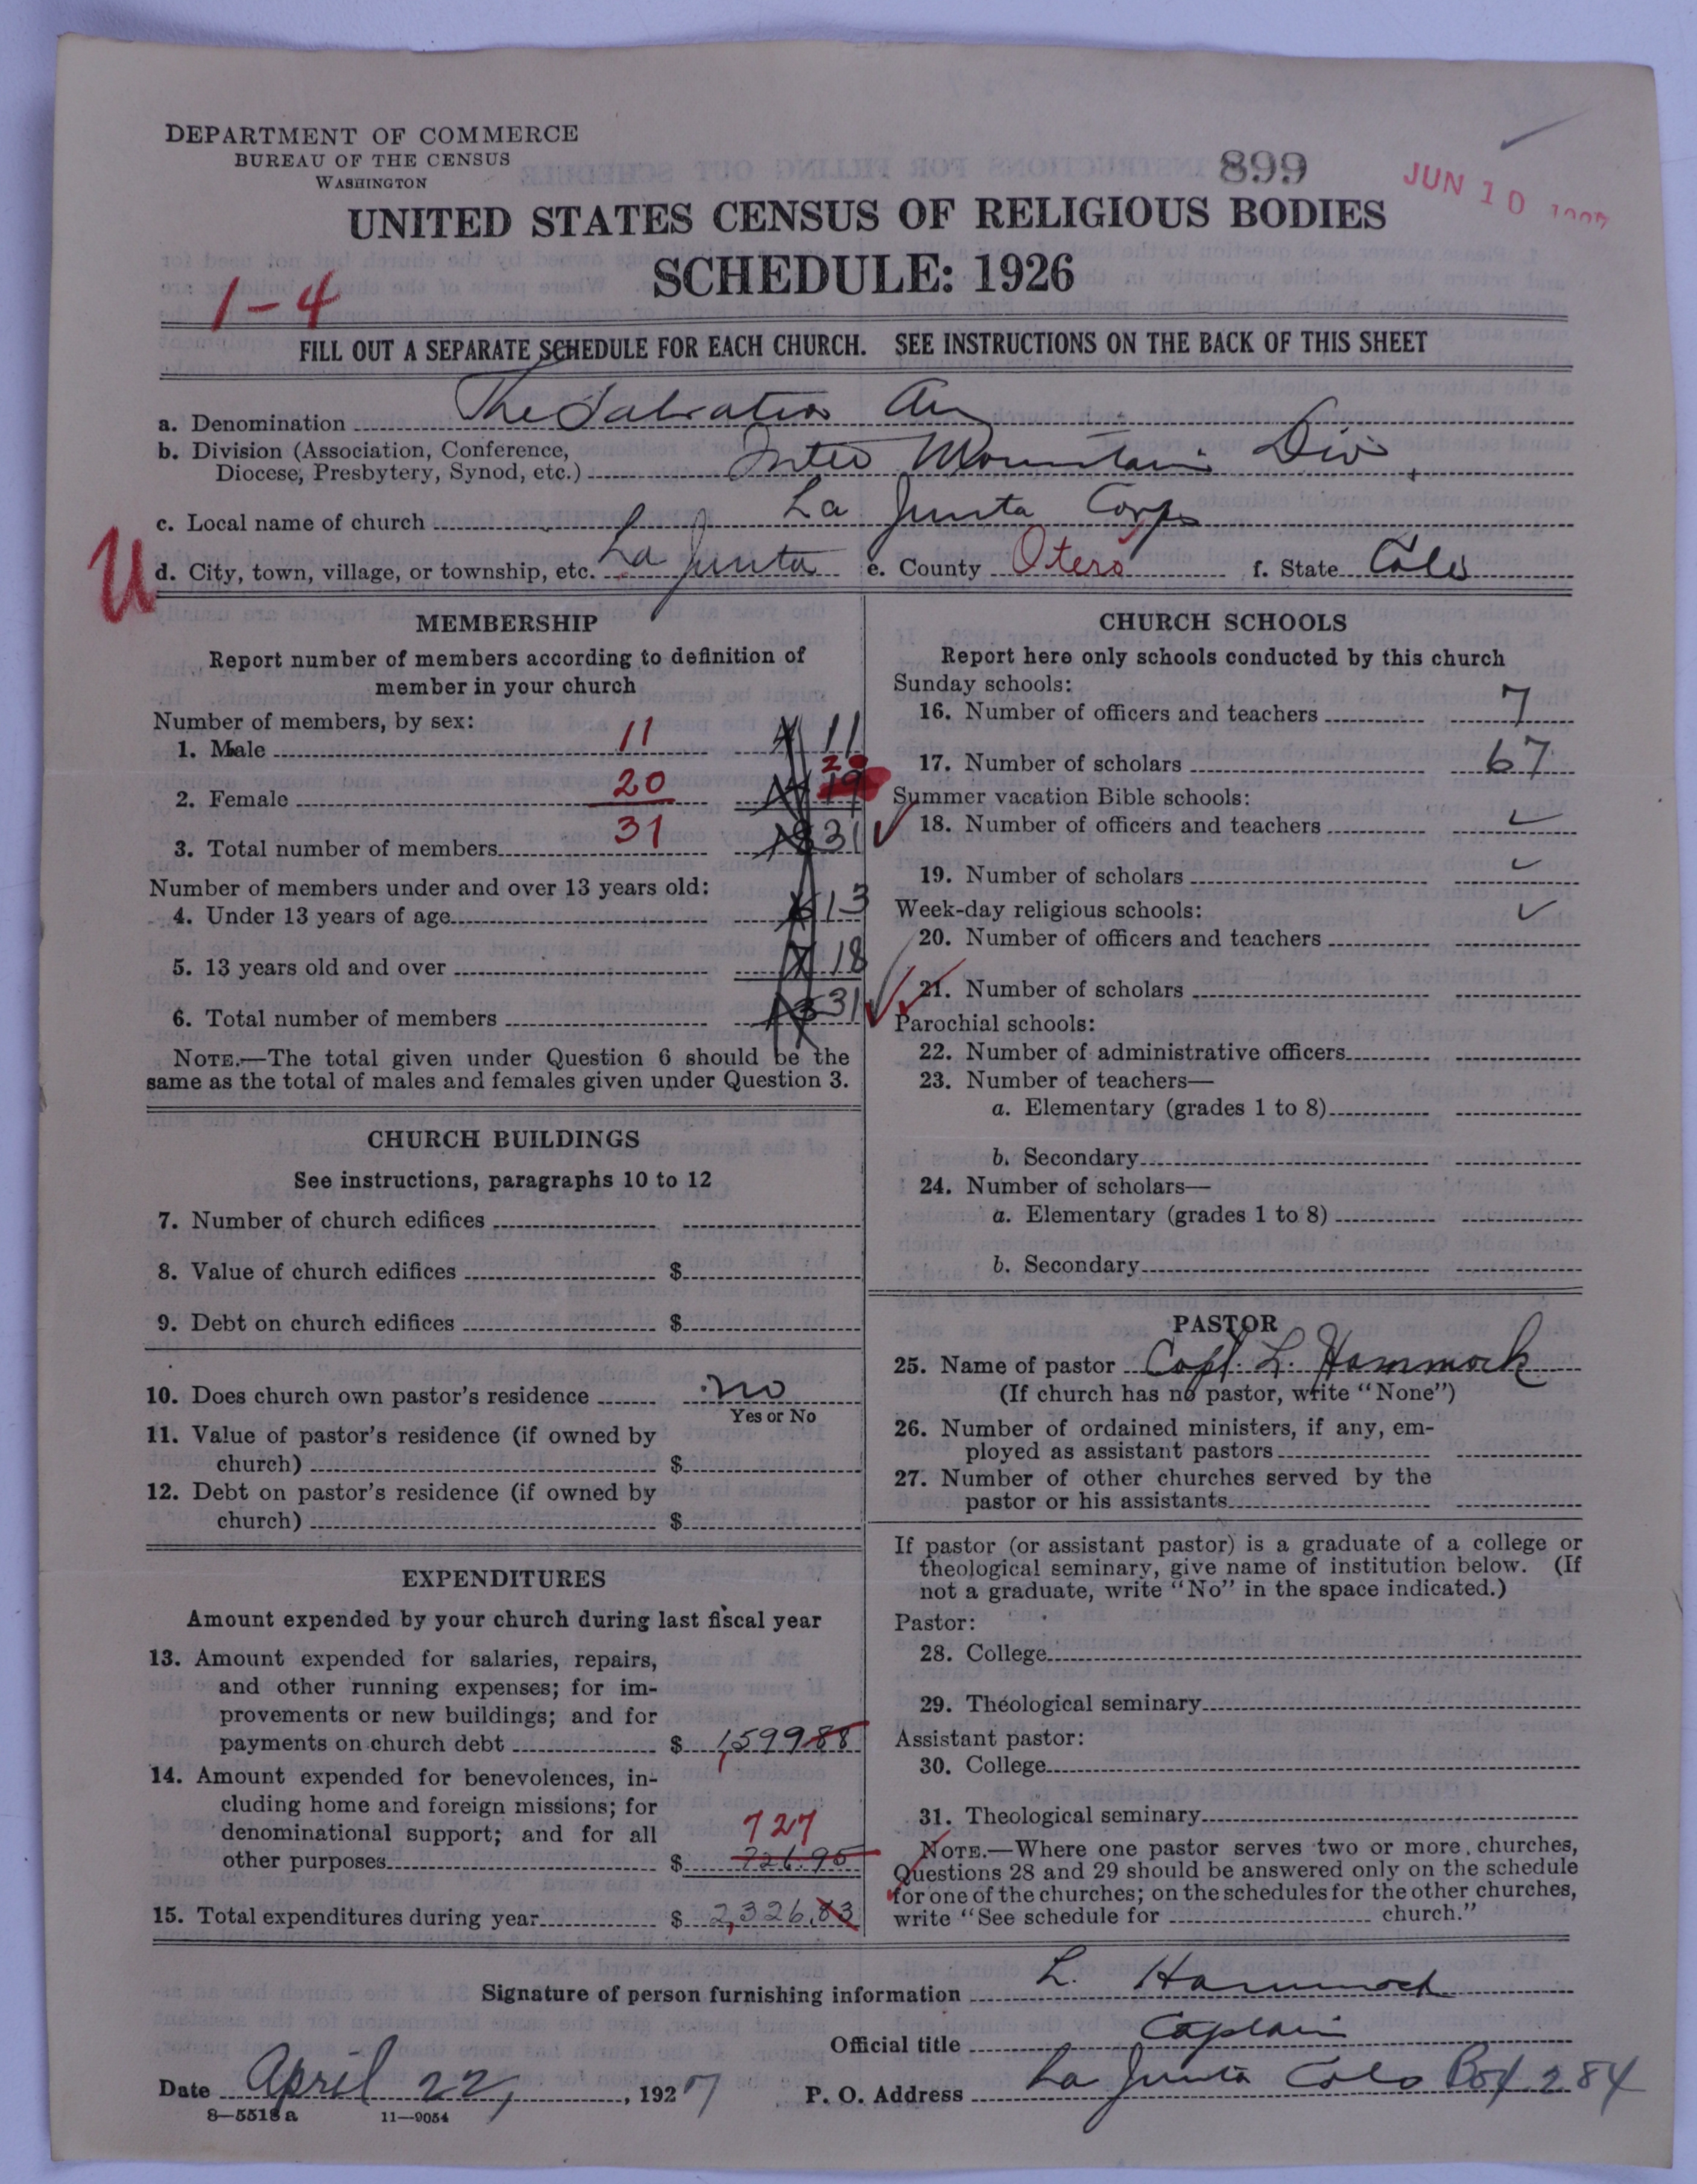 DEPARTMENT OF COMMERCE
BUREAU OF THE CENSUS
WASHINGTON
899
JUN 10
UNITED STATES CENSUS OF RELIGIOUS BODIES
SCHEDULE: 1926
1-4
FILL OUT A SEPARATE SCHEDULE FOR EACH CHURCH. SEE INSTRUCTIONS ON THE BACK OF THIS SHEET
a. Denomination The Salvation
b. Division (Association, Conference,
Diocese, Presbytery, Synod, etc.) Inter Mountain Div.
c. Local name of church La Junta Corps
U
d. City, town, village, or township, etc. La Junta e. County Otero f. State Colo
MEMBERSHIP
Report number of members according to definition of
member in your church
Number of members, by sex:
1. Male 11 11
2. Female 20 20 19
3. Total number of members 31 31
Number of members under and over 13 years old:
4. Under 13 years of age 13
5. 13 years old and over 18
6. Total number of members 31
NOTE.—The total given under Question 6 should be the
same as the total of males and females given under Question 3.
CHURCH BUILDINGS
See instructions, paragraphs 10 to 12
7. Number of church edifices
8. Value of church edifices $
9. Debt on church edifices $
10. Does church own pastor's residence no
Yes or No
11. Value of pastor's residence (if owned by
church) $
12. Debt on pastor's residence (if owned by
church) $
EXPENDITURES
Amount expended by your church during last fiscal year
13. Amount expended for salaries, repairs,
and other running expenses; for im-
provements or new buildings; and for
payments on church debt $ 1,599.88
14. Amount expended for benevolences, in-
cluding home and foreign missions; for
denominational support; and for all 727
other purposes $ 726.95
15. Total expenditures during year $ 2,326.83
CHURCH SCHOOLS
Report here only schools conducted by this church
Sunday schools:
16. Number of officers and teachers 7
17. Number of scholars 67
Summer vacation Bible schools:
18. Number of officers and teachers
19. Number of scholars
Week-day religious schools:
20. Number of officers and teachers
21. Number of scholars
Parochial schools:
22. Number of administrative officers
23. Number of teachers—
a. Elementary (grades 1 to 8)
b. Secondary
24. Number of scholars—
a. Elementary (grades 1 to 8)
b. Secondary
PASTOR
25. Name of pastor Capt. L. Hammock
(If church has no pastor, write "None")
26. Number of ordained ministers, if any, em-
ployed as assistant pastors
27. Number of other churches served by the
pastor or his assistants
If pastor (or assistant pastor) is a graduate of a college or
theological seminary, give name of institution below. (If
not a graduate, write "No" in the space indicated.)
Pastor:
28. College
29. Theological seminary
Assistant pastor:
30. College
31. Theological seminary
NOTE.—Where one pastor serves two or more churches,
Questions 28 and 29 should be answered only on the schedule
for one of the churches; on the schedules for the other churches,
write "See schedule for church."
Signature of person furnishing information L. Hammock
Official title Captain
Date April 22, 1927 P. O. Address La Junta Colo Box 284
8—5518 a 11—9054